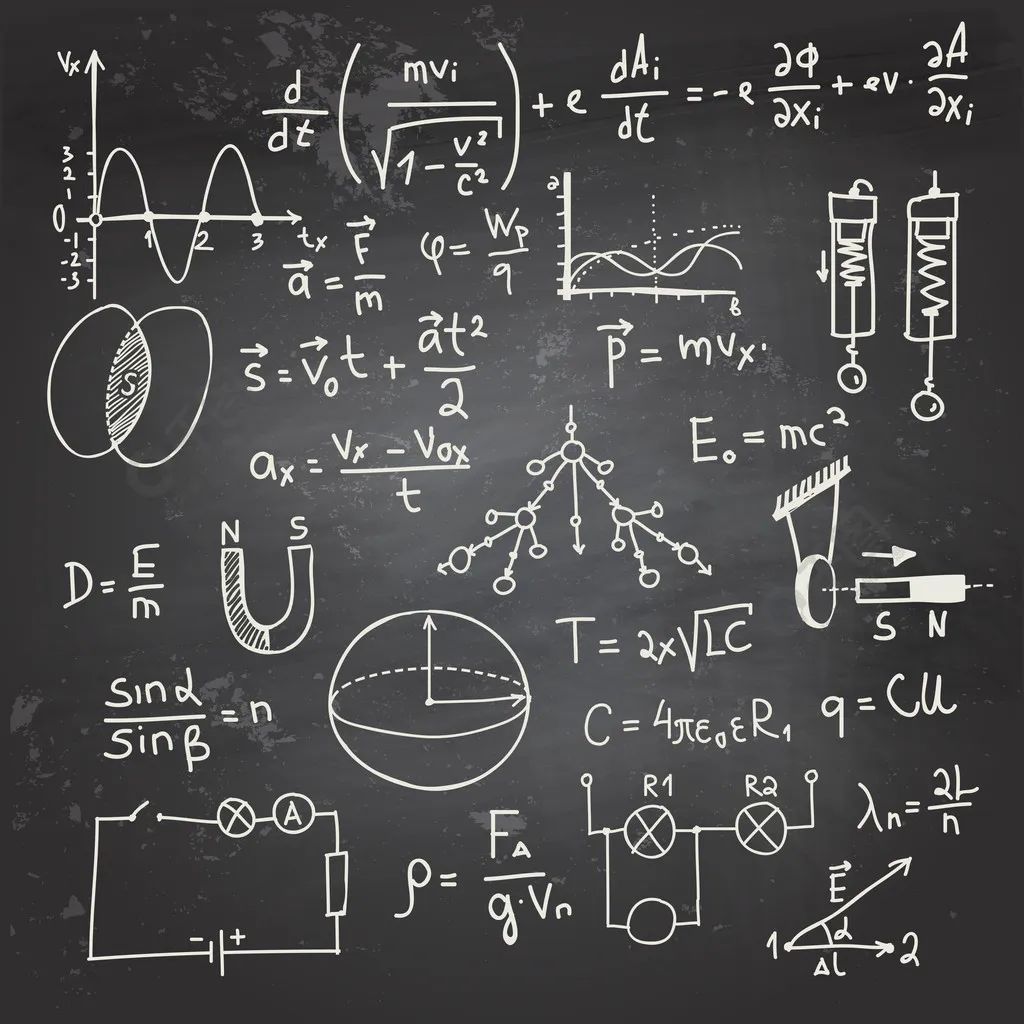 Vx
3
2
1
0
-1
-2
-3
1 2 3 tx
d/dt (mvi / √(1 - v²/c²)) + e dAi/dt = -e ∂Φ/∂xi + ev · ∂A/∂xi
a⃗ = F⃗/m
φ = Wp/q
a
в
s⃗ = v⃗₀t + a⃗t²/2
p⃗ = mvx.
S
E₀ = mc²
ax = (Vx - V₀x)/t
N S
D = E/m
S N
T = 2x√LC
sinα/sinβ = n
C = 4πε₀εR₁
q = CU
R1 R2
λn = 2L/n
A
- +
ρ = FA/(g·Vn)
E⃗
α
1 2
Δl